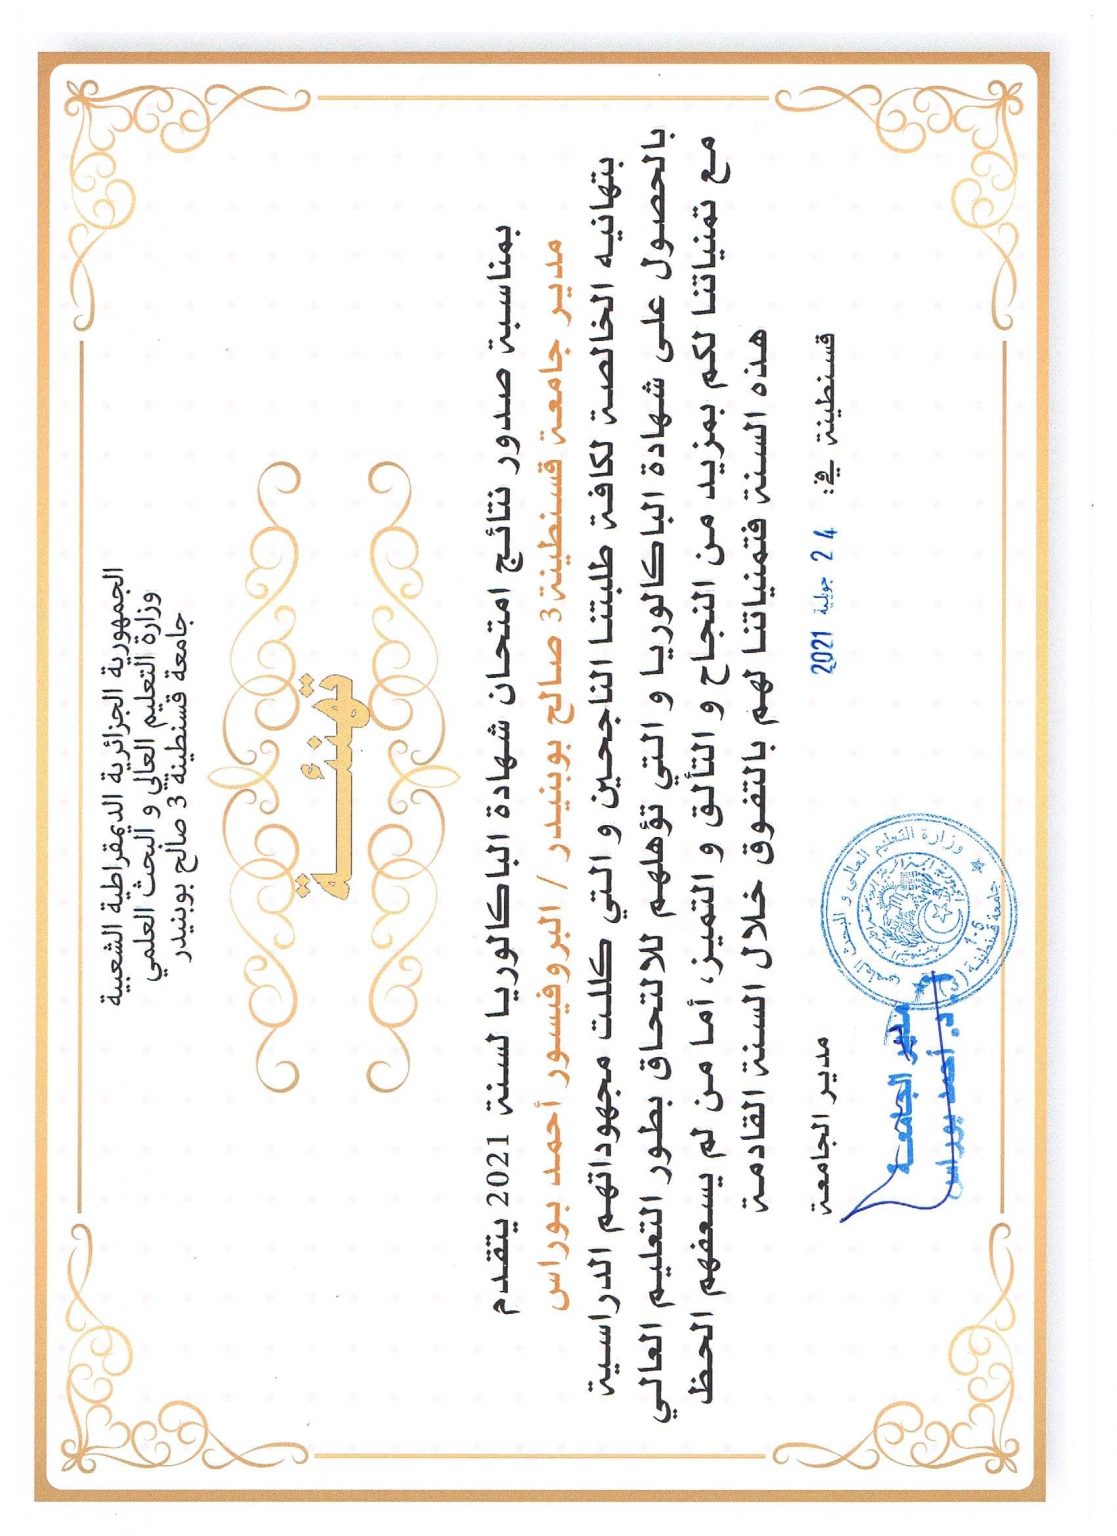 الجمهورية الجزائرية الديمقراطية الشعبية
وزارة التعليم العالي و البحث العلمي
جامعة قسنطينة 3 صالح بوبنيدر
تهنئة
بمناسبة صدور نتائج امتحان شهادة الباكالوريا لسنة 2021 يتقدم
مدير جامعة قسنطينة3 صالح بوبنيدر / البروفيسور أحمد بوراس
بتهانيه الخالصة لكافة طلبتنا الناجحين و التي كللت مجهوداتهم الدراسية
بالحصول على شهادة الباكالوريا و التي تؤهلهم للالتحاق بطور التعليم العالي
مع تمنياتنا لكم بمزيد من النجاح و التألق و التميز، أما من لم يسعفهم الحظ
هذه السنة فتمنياتنا لهم بالتفوق خلال السنة القادمة
قسنطينة في: 24 جويلية 2021
مدير الجامعة
مدير الجامعة
أ.د. أحمد بوراس
وزارة التعليم العالي و البحث العلمي
جامعة قسنطينة